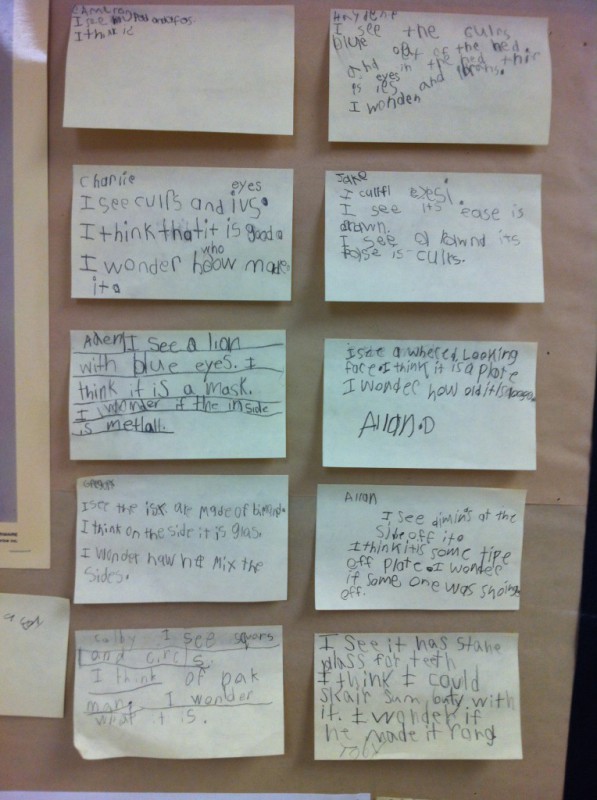 I see
I think
I see the culrs
blue of the hed
and in the hed thir
is eyes and
I wonder
Charlie eyes
I see culrs and ivs.
I think that it is good.
who
I wonder how made
it.
Jake
I see its ease is
drawn.
I see a rownd its
is culrs.
Aden I see a lion
with blue eyes. I
think it is a mask.
I wonder if the inside
is metlall.
I see a whered Looking
face. I think it is a plate
I wonder how old it is
Allan.D
I see the are made of
I think on the side it is glas.
I wonder haw he mix the
sides.
Allan
I see dimins at the
side off it.
I think it is some tipe
off plate. I wonder
if some one was shoing
off.
Colby I see sqars
and circls.
I think of pak
man. I wonder
what it is.
I see it has stane
glass for teeth
I think I could
skair sum buty with
it. I wonder if
he made it rong